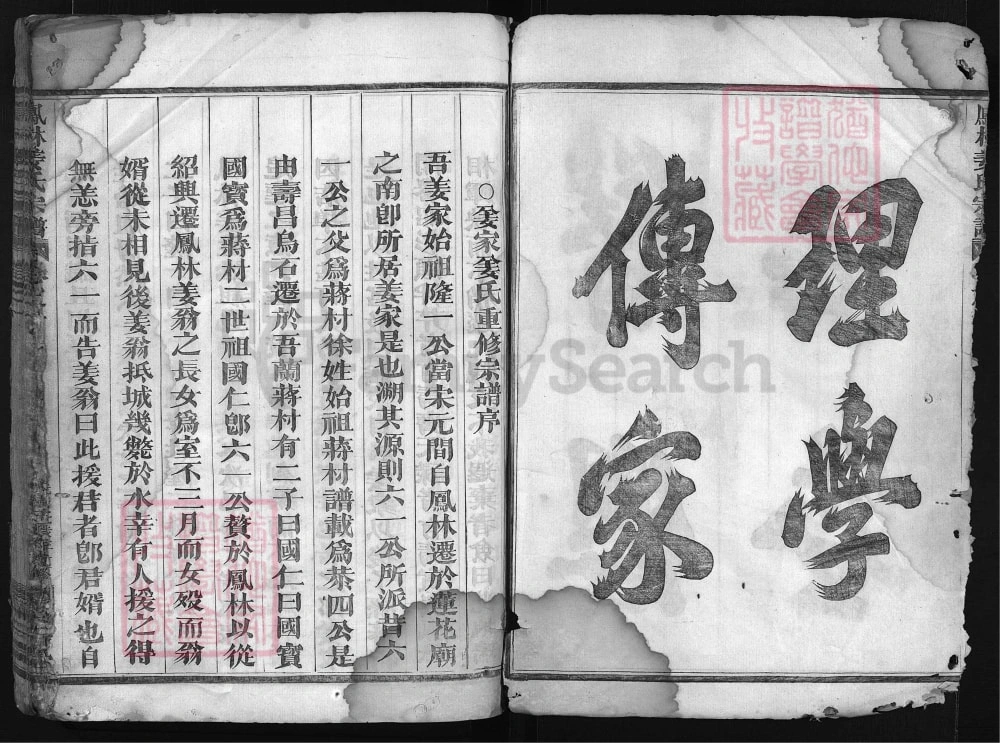 理學
傳家
○姜家姜氏重修宗譜序
吾姜家始祖隆一公當宋元間自鳳林遷於蓮花廟
之南卽所居姜家是也溯其源則六一公所派昔六
一公之父爲蔣村徐姓始祖蔣村譜載爲恭四公是
由壽昌烏石遷於吾蘭蔣村有二子曰國仁曰國寳
國寳爲蔣村二世祖國仁卽六一公贅於鳳林以從
紹興遷鳳林姜翁之長女爲室不二月而女殁而翁
婿從未相見後姜翁抵城幾斃於水幸有人援之得
無恙旁揞六一而告姜翁曰此援君者卽君婿也自
鳳林姜氏宗譜
FamilySearch